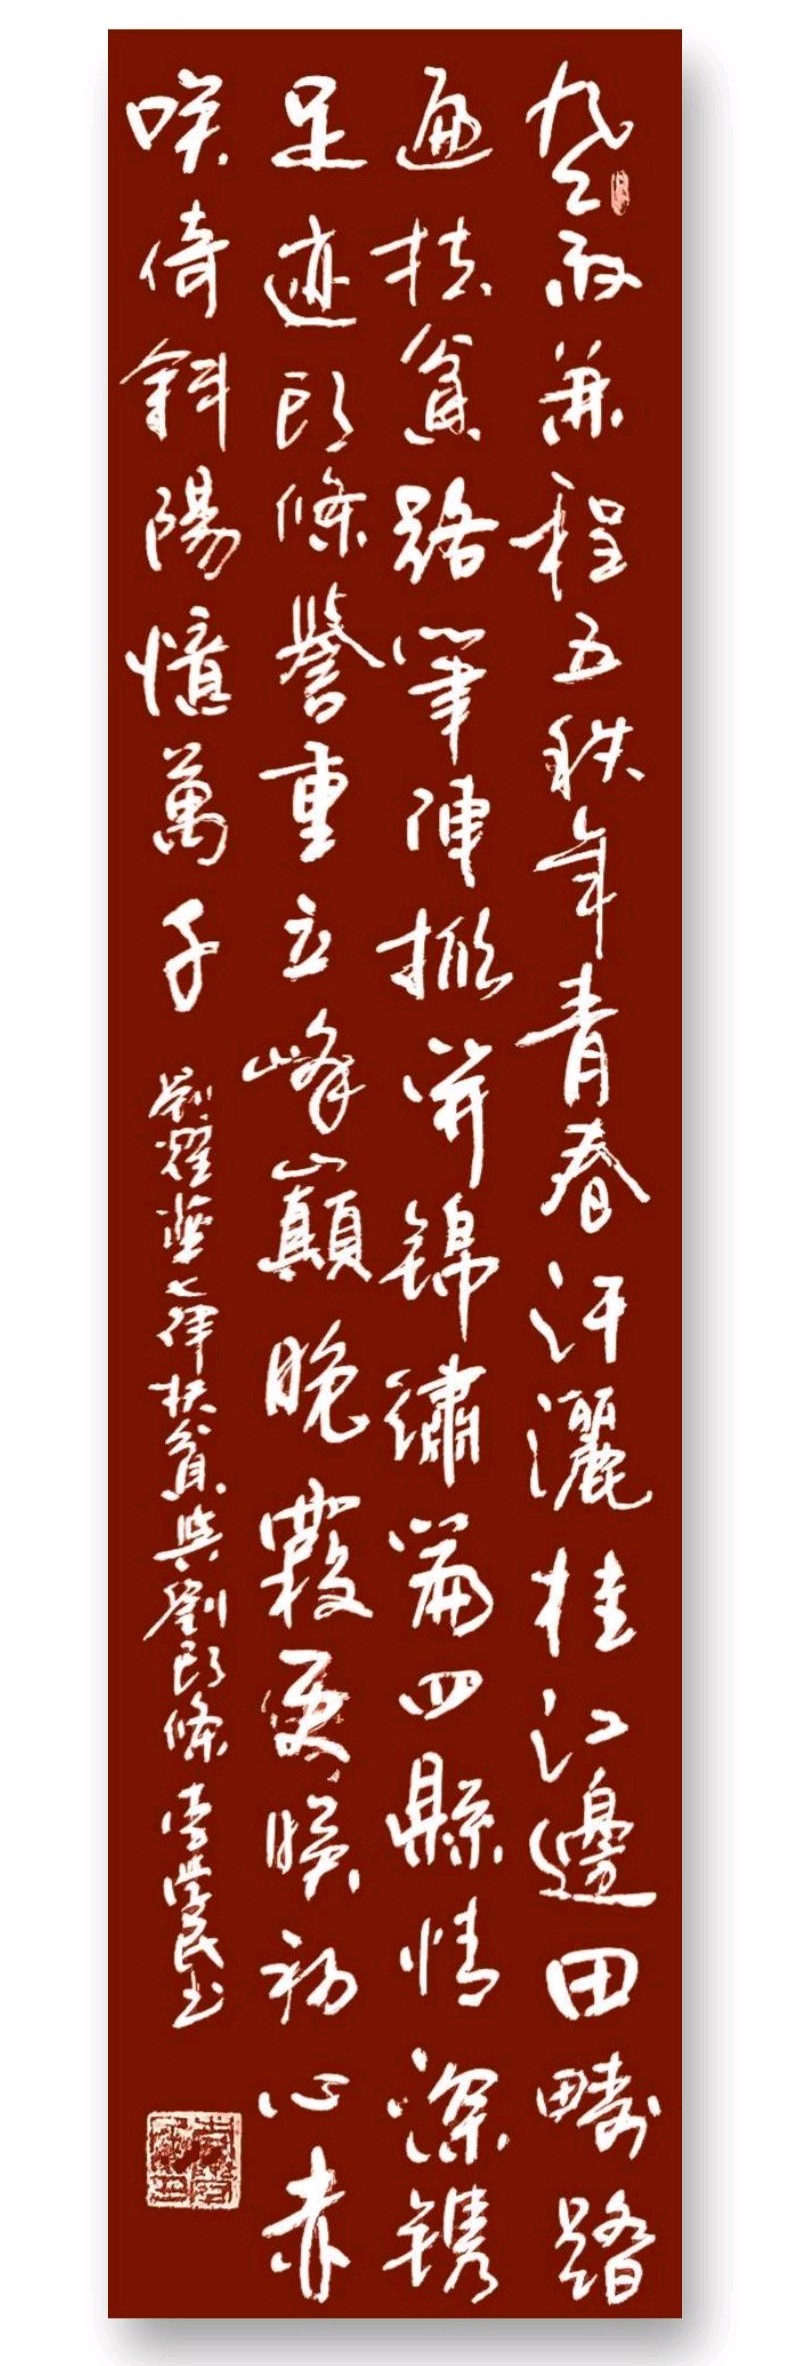 风雨兼程五秩年青春汗灑桂江邊田疇踏
遍扶貧路筆陣掀開錦繡篇四縣情深鐫
足迹郎條譽重立峰巔晚霞更映初心赤
笑倚斜陽憶萬千
劉 七律扶貧與劉郎條 李學民書